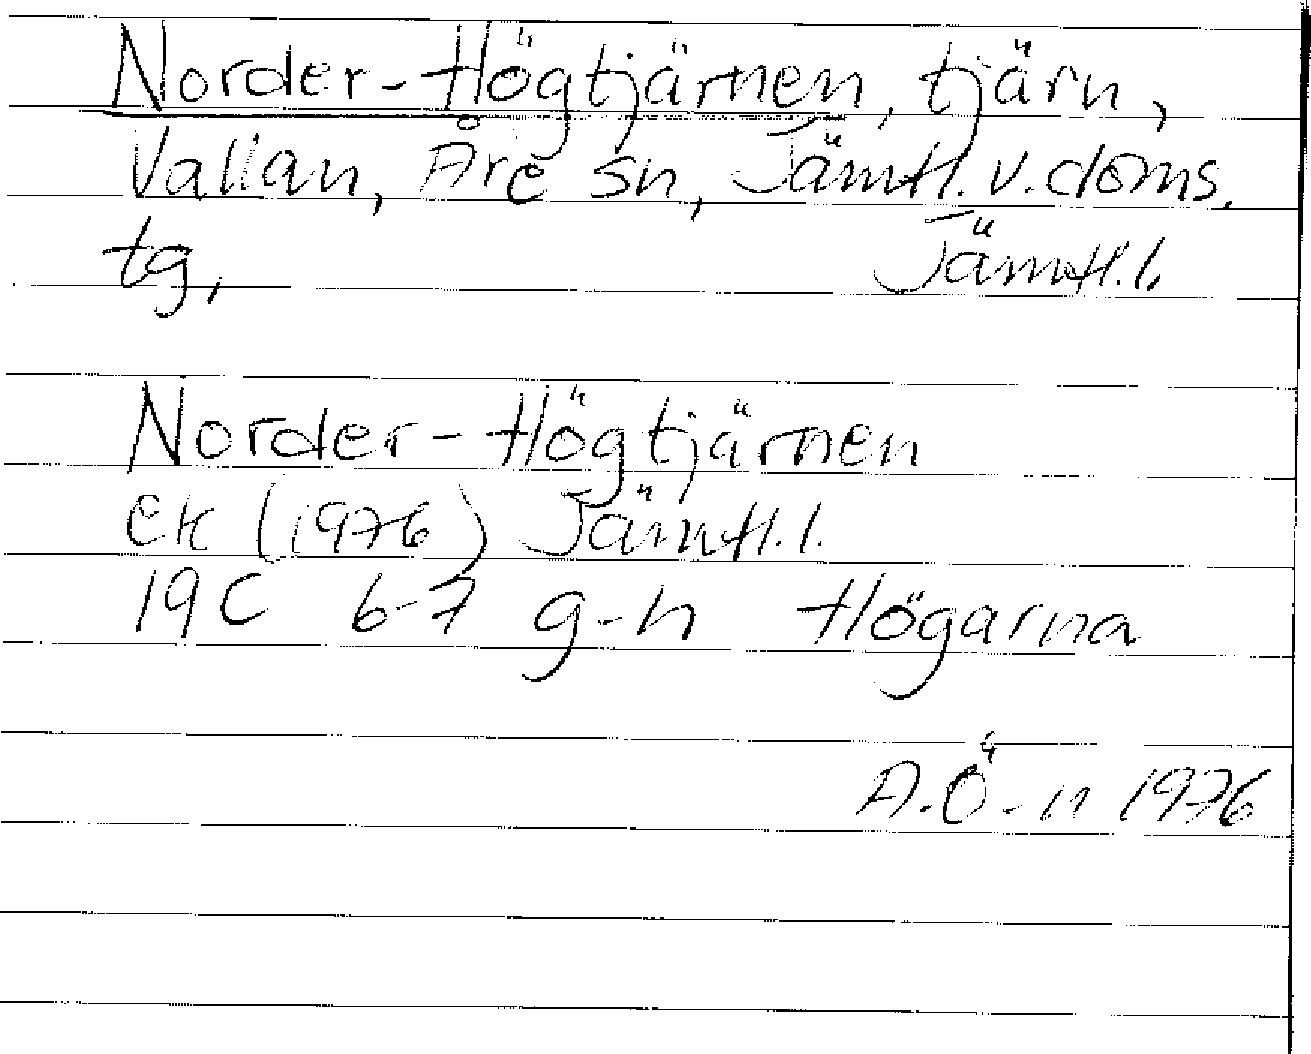 Norder-Högtjärnen, tjärn,
Vallan, Åre sn, Jämtl. v. doms.
tg, Jämtl. l.
Norder-Högtjärnen
ek (1976) Jämtl. l.
19C 6-7 g-h Högarna
A.Ö-n 1976